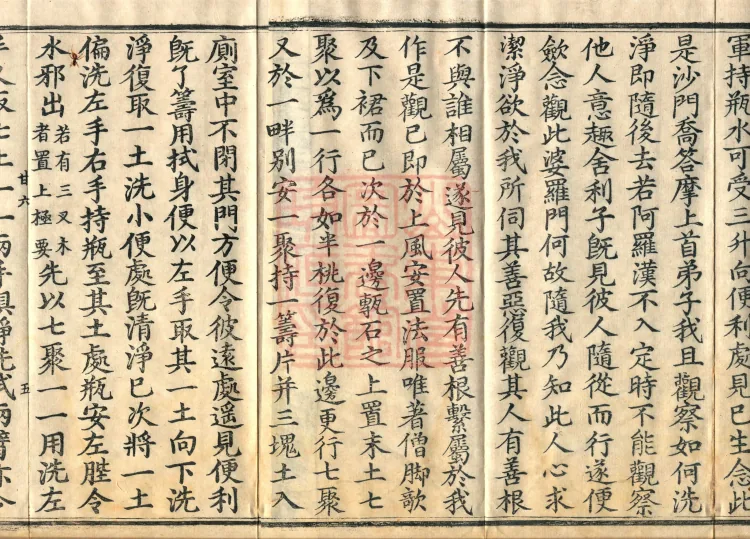 軍持瓶水可受三升向便利處見已生念此
是沙門喬答摩上首弟子我且觀察如何洗
淨即隨後去若阿羅漢不入定時不能觀察
他人意趣舍利子既見彼人隨從而行遂便
斂念觀此婆羅門何故隨我乃知此人心求
潔淨欲於我所伺其善惡復觀其人有善根
不與誰相屬遂見彼人先有善根繫屬於我
作是觀已即於上風安置法服唯著僧脚欹
及下裙而已次於一邊甎石之上置末土七
聚以爲一行各如半桃復於此邊更行七聚
又於一畔別安一聚持一籌片并三塊土入
廁室中不閉其門方便令彼遠處遥見便利
旣了籌用拭身便以左手取其一土向下洗
淨復取一土洗小便處旣清淨已次將一土
偏洗左手右手持瓶至其土處瓶安左䏶令
水邪出若有三叉木者置上極要先以七聚一一用洗左
廿六 五